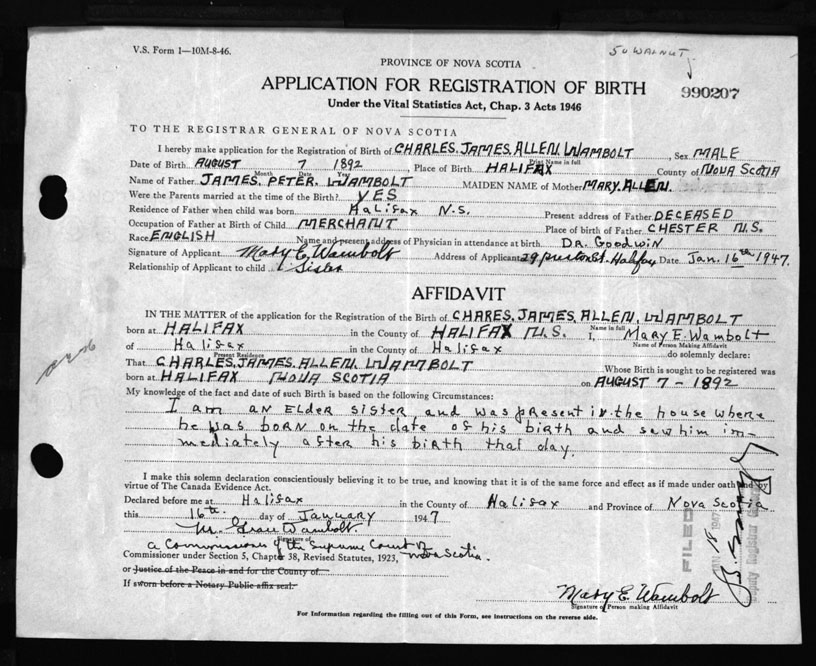 V.S. Form 1—10M-8-46.
50 WALNUT
PROVINCE OF NOVA SCOTIA
APPLICATION FOR REGISTRATION OF BIRTH
990207
Under the Vital Statistics Act, Chap. 3 Acts 1946
TO THE REGISTRAR GENERAL OF NOVA SCOTIA
I hereby make application for the Registration of Birth of CHARLES. JAMES. ALLEN. WAMBOLT, Sex MALE
Print Name in full
Date of Birth AUGUST 7 1892, Place of Birth HALIFAX County of NOVA SCOTIA
Month Date Year
Name of Father JAMES. PETER. WAMBOLT MAIDEN NAME of Mother MARY. ALLEN.
Were the Parents married at the time of Birth? YES
Residence of Father when child was born Halifax N.S. Present address of Father DECEASED
Occupation of Father at Birth of Child MERCHANT Place of birth of Father CHESTER N.S.
Race ENGLISH Name and present address of Physician in attendance at birth DR. GOODWIN
Signature of Applicant Mary E. Wambolt Address of Applicant 29 Preston St. Halifax Date Jan. 16th 1947.
Relationship of Applicant to child Sister
AFFIDAVIT
IN THE MATTER of the application for the Registration of the Birth of CHARES. JAMES. ALLEN. WAMBOLT
Name in full
born at HALIFAX in the County of HALIFAX N.S. I, Mary E. Wambolt
Name of Person Making Affidavit
of Halifax in the County of Halifax do solemnly declare:
Present Residence
That CHARLES. JAMES. ALLEN. WAMBOLT Whose Birth is sought to be registered was
born at HALIFAX NOVA SCOTIA on AUGUST 7 - 1892
My knowledge of the fact and date of such Birth is based on the following Circumstances:
I am AN ELDER sister, and was present in the house where
he was BORN on the date of his birth and saw him im-
mediately after his birth that day.
I make this solemn declaration conscientiously believing it to be true, and knowing that it is of the same force and effect as if made under oath and by
virtue of The Canada Evidence Act.
Declared before me at Halifax in the County of Halifax and Province of Nova Scotia
this 16th. day of January 1947
M. Grace Wambolt.
Signature of
a Commissioner of the Supreme Court of
Commissioner under Section 5, Chapter 38, Revised Statutes, 1923, Nova Scotia.
or Justice of the Peace in and for the County of
If sworn before a Notary Public affix seal.
FILED
Deputy Registrar
Mary E. Wambolt
Signature of Person making Affidavit
For Information regarding the filling out of this Form, see instructions on the reverse side.